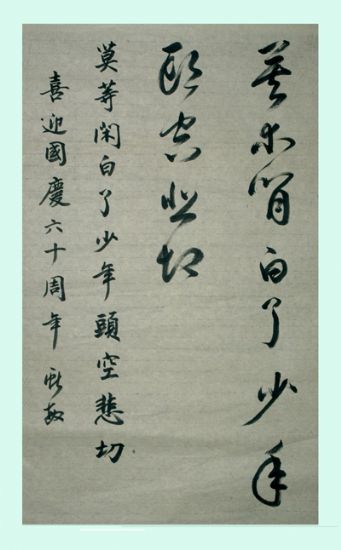 莫等閒白了少年
頭空悲切
莫等閑白了少年頭空悲切
喜迎國慶六十周年